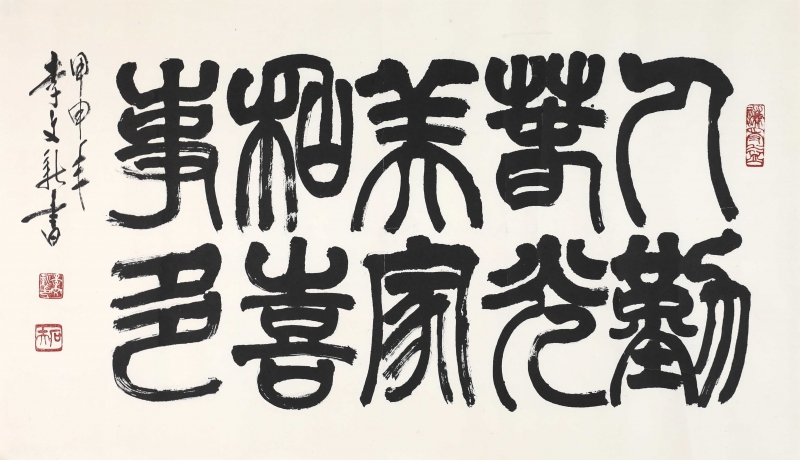 人勤
春光
美家
和喜
事多
甲申年
李文新書